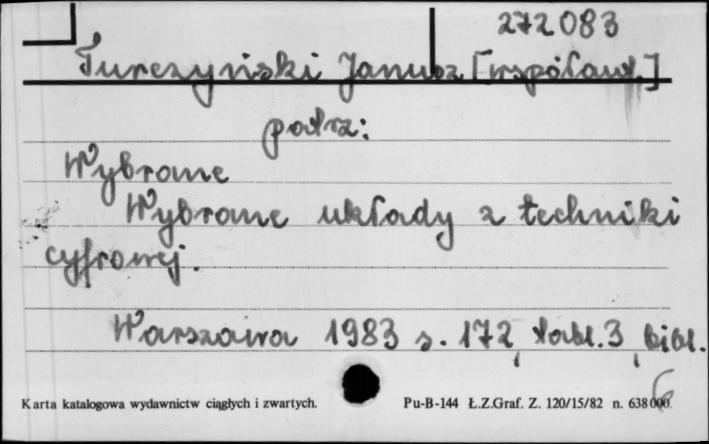 272083
Turczyński Janusz [współaut.]
patrz:
Wybrane
Wybrane układy z techniki
cyfrowej.
Warszawa 1983 s. 172, tabl. 3, bibl.
Karta katalogowa wydawnictw ciągłych i zwartych. Pu-B-144 Ł.Z.Graf. Z. 120/15/82 n. 638000.